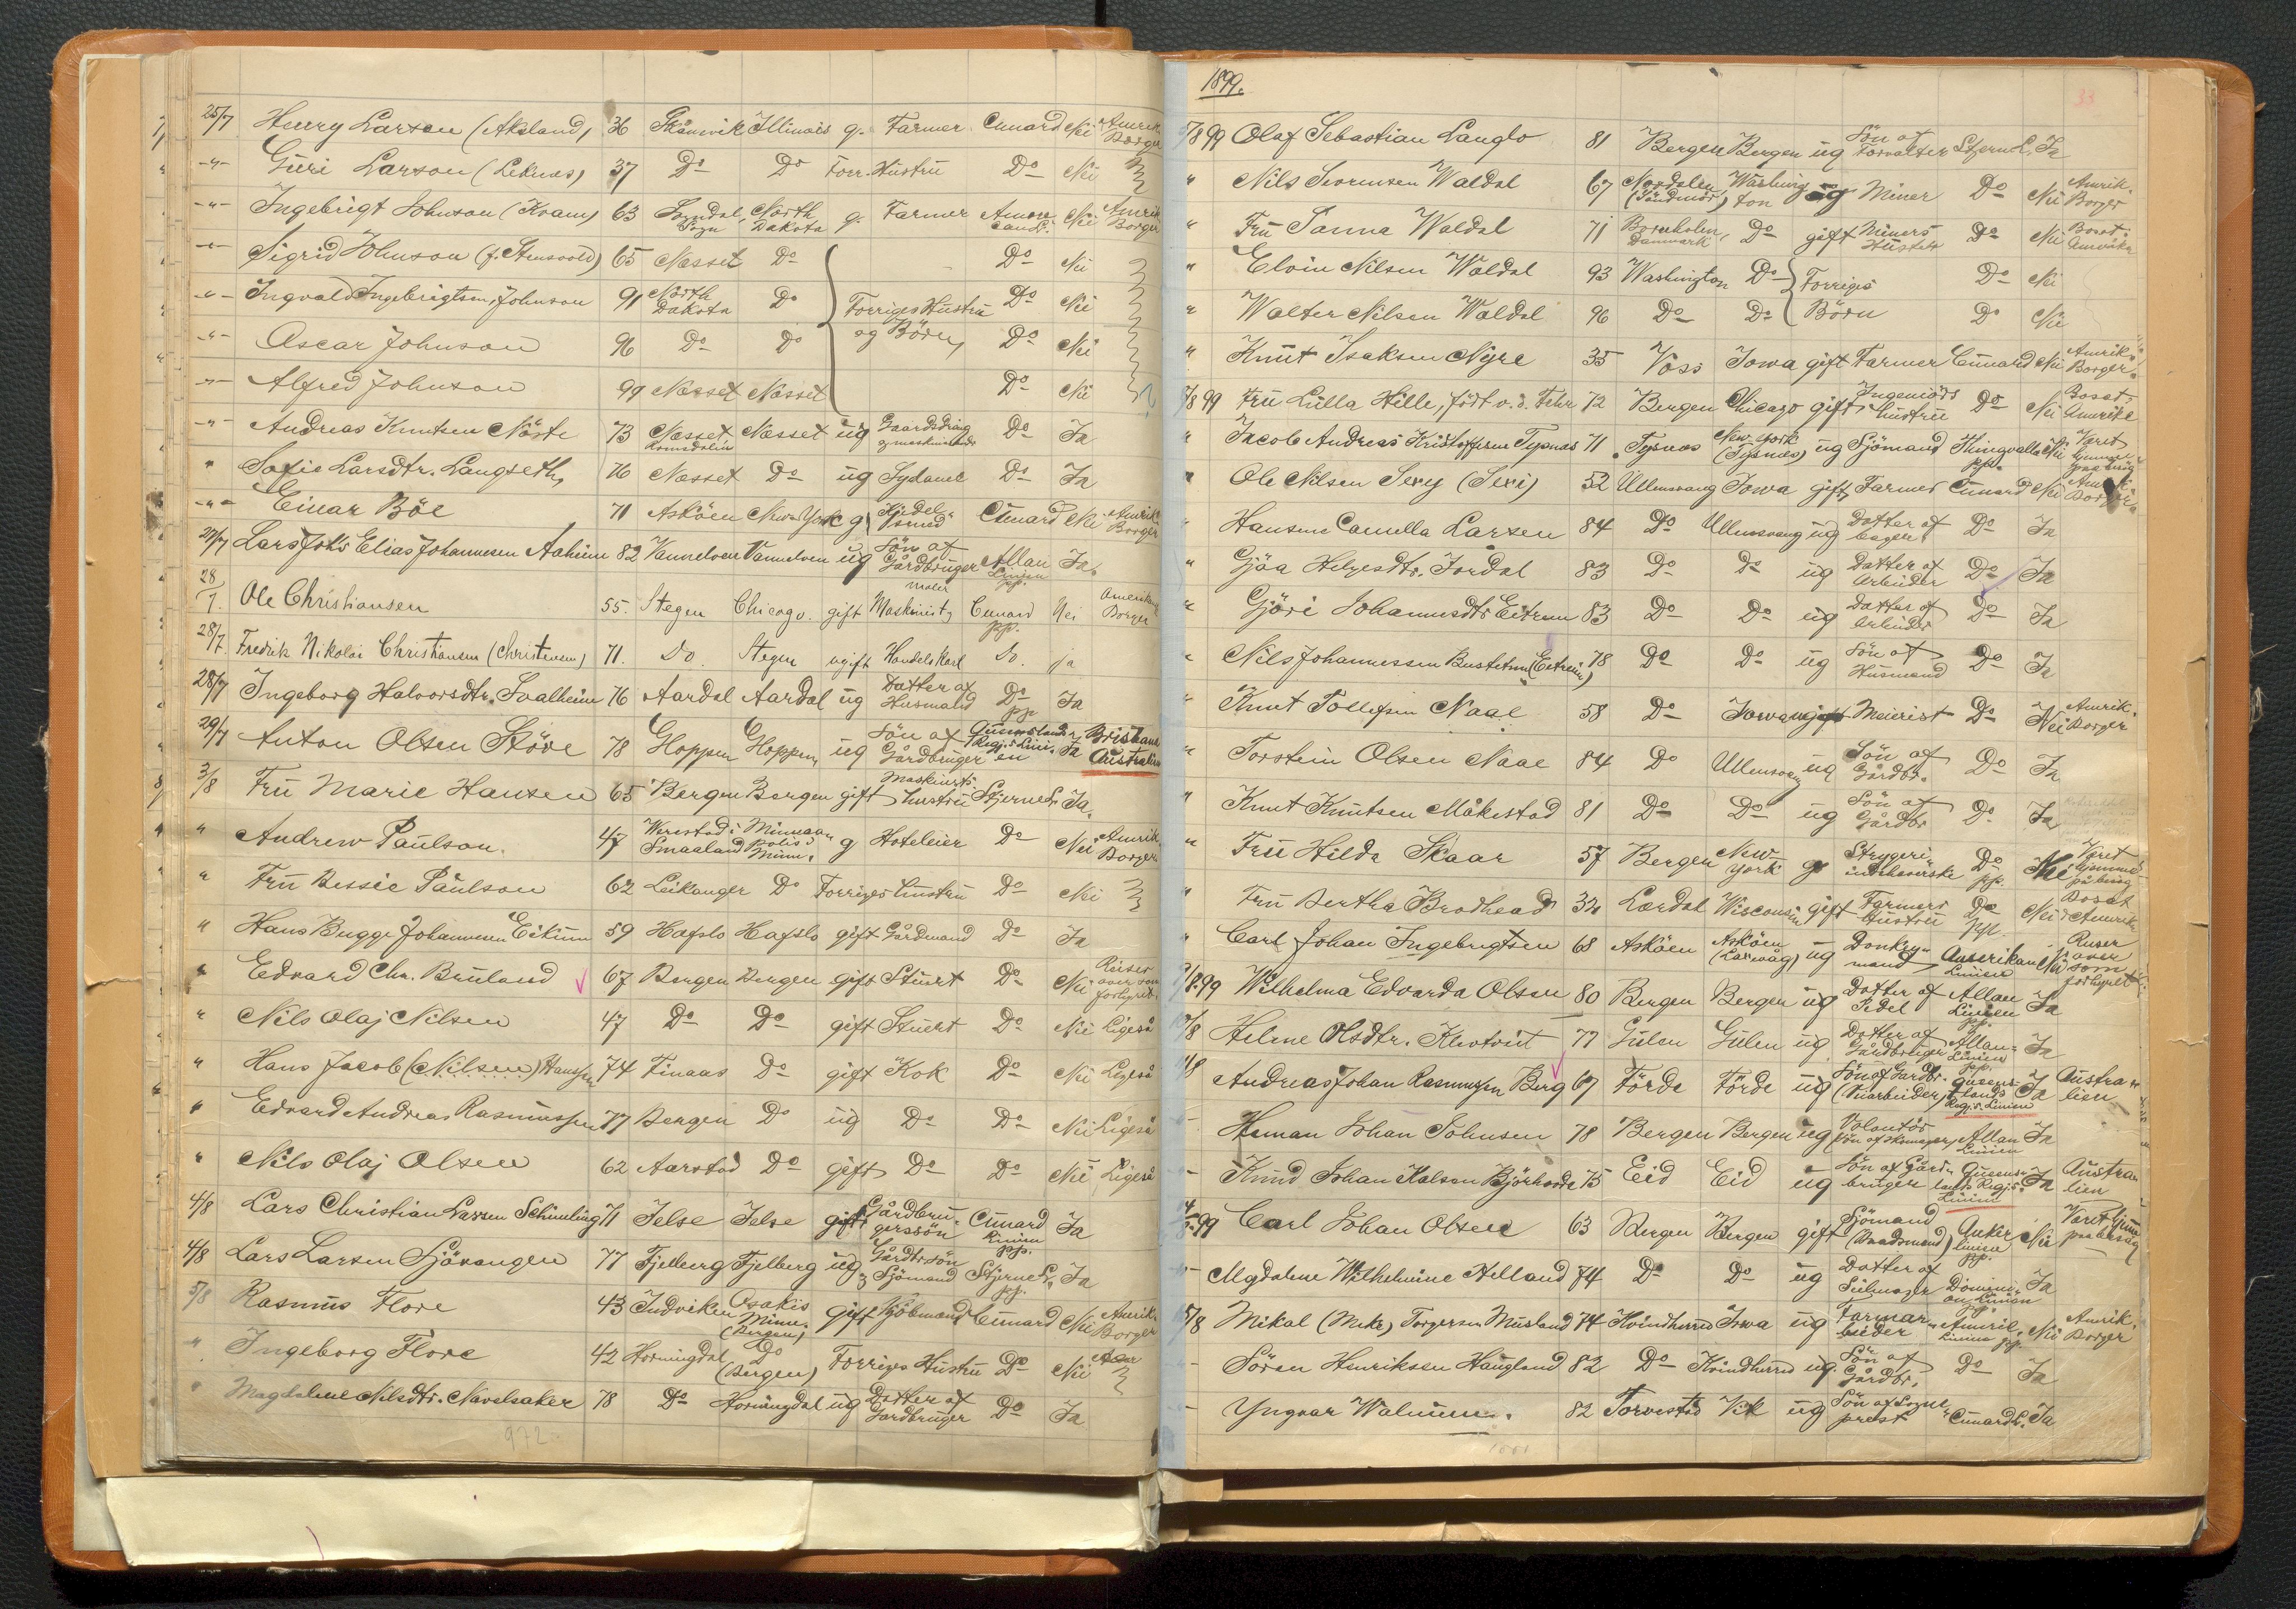 25/7 Henry Larsen (Akeland) 36 Illinois g. Farmer Cunard Nei Amrik. Borger
-"- Guri Larson (Leknes) 37 Do Do Forr. Hustru Do Nei
-"- Ingebrigt Johnson (Kvam) 63 Sogndal, Sogn North Dakota g. Farmer Nei Amrik Borger
-"- Sigrid Johnson (f. Stensvold) 65 Nesset Do Do Nei
-"- Ingvald Ingebrigtsen Johnson 91 North Dakota Do Forriges Hustru og Börn, Do Nei
-"- Ascar Johnson 96 Do Do Do Nei
-"- Alfred Johnson 99 Nesset Nesset Do Nei
-"- Andreas Knutsen Nöste 73 Nesset Romsdalen Nesset ug Gaardsdräng Do Ja
" Sofie Larsdtr. Langseth, 76 Nesset Do ug Sydame Do Ja
-"- Einar Böe 71 Asköen New-York g. Kjedelsmed Cunard Nei Amrik Borger
27/7 Lars Joh's Elias Johannesen Aaheim 82 Vannelven Vannelven ug Sön af Gårdbruger Allan Linien pp. Ja
28/7. Ole Christiansen 55. Stegen Chicago. gift Maler Maskinist, Cunard pp. Nei Amerikansk Borger
28/7. Fredrik Nikolai Christiansen (Christensen) 71. Do. Stegen ugift Handelskarl Do. ja
28/7 Ingeborg Halvorsdtr. Svalheim 76 Aardal Aardal ug Datter af Husmand Do pp Ja
29/7 Anton Olsen Störe 78 Hoppen Hoppen, ug Sön af Gårdbruger Queensland Regj.s Linien Ja Brisbane Australien
3/8 Fru Marie Hansen 65 Bergen Bergen gift Maskinists hustru Stjerne L. Ja.
" Andrew Paulson. 47 Werestad i Smaaland Minneapolis Minn. g Hoteleier Do Nei Amrik. Borger
" Fru Bessie Paulson 62 Leikanger Do Forriges hustru Do Nei
" Hans Bugge Johannesen Eikum 59 Hafslo Hafslo gift Gårdmand Do Ja
" Edvard Chr. Bruland 67 Bergen Bergen gift Stuert Do Nei Reiser over som forhyret.
" Nils Olaj Nilsen 47 Do Do gift Stuert Do Nei Ligeså
" Hans Jacob (Nilsen) Hanssen 74 Finaas Do gift Kok Do Nei Ligeså
" Edvard Andreas Rasmussen 77 Bergen Do ug Do Do Nei Ligeså
" Nils Olaj Olsen 62 Aarstad Do gift Do Do Nei Ligeså
4/8 Lars Christian Larsen Schimling 71 Jelse Jelse gift Gårdbrugerssön Cunard Linien pp. Ja
4/8 Lars Larsen Sjövangen 77 Fjelberg Fjelberg ug Gårdbr.sön & Sjömand Stjerne L. pp. Ja
5/8 Rasmus Flore 43 Indviken Osakis Minn. (Bergen) gift Kjöbmand Cunard Nei Amrik. Borger
" Ingeborg Flore 42 Horningdal Do (Bergen) Forriges Hustru Do Nei
" Magdalene Nilsdtr. Navelsaker 78 Do Horningdal ug Datter af Gardbruger Do Ja
972
1899.
33
7/8 99 Olaf Sebastian Langlo 81 Bergen Bergen ug Sön af Forvalter Stjerne L. Ja
" Nils Sivrensen Waldal 67 Nordalen (Söndmör) Washington ug Miner Do Nei Amrik. Borger
" Fru Sanna Waldal 71 Bornholm, Danmark Do gift Miners Hustru Do Nei Bosat i Amerika
" Elvin Nilsen Waldal 93 Washington Do Forriges Do Nei
" Walter Nilsen Waldal 96 Do Do Börn Do Nei
" Knut Isaksen Nyre 35 Voss Iowa gift Farmer Cunard Nei Amrik. Borger.
7/8 99 Fru Lulla Helle, födt v. d. Fehr 72 Bergen Chicago gift Ingeniörs hustru Do Nei Bosat i Amerika
" Jacob Andreas Kristoffersen Tysnes 71 Tysnes New-York (Tysnes) ug Sjömand Thingvalla pp. Nei Været hjemme paa besög
" Ole Nilsen Sexy (Sexi) 52 Ullensvang Iowa gift Farmer Cunard Nei Amrik Borger
" Hansine Camilla Larsen 84 Do Ullensvang ug Datter af bager Do Ja
" Gjöa Helgesdtr. Jordal 83 Do Do ug Datter af Arbeider Do Ja
" Gjöri Johannesdtr Eitrem 83 Do Do ug Datter af Arbeider Do Ja
" Nils Johannessen Bustetun (Eitrem) 78 Do Do ug Sön af Husmand Do Ja
" Knut Tollefsen Naae 58 Do Iowa ugift Meierist Do Nei Amrik. Borger
" Torstein Olsen Naae 84 Do Ullensvang ug Sön af Gårdbr. Do Ja
" Knut Knutsen Måkestad 81 Do Do ug Sön af Gårdbr Do Ja
" Fru Hilda Skaar 57 Bergen New York g Strygeri indehaverske Do pp. Nei Været hjemme på besög
" Fru Bertha Brodhead 32 Lærdal Wisconsin gift Farmers Hustru Do pp. Nei Bosat i Amerika
" Carl Johan Ingebrigtsen 68 Asköen Asköen (Larvaag) ug Donkeymand Amerikan Linien Nei Reiser over som forhyret
9/8.99 Wilhelma Edvarda Olsen 80 Bergen Bergen ug Datter af Pedel Allan Linien pp. Ja
/8 Helene Olsdtr. Klevtvit 77 Gulen Gulen ug Datter af Gårdbruger Allan Linien pp. Ja
11/8 Andreas Johan Rasmussen Berg 67 Förde Förde ug Sön af Gardbr. Queenslands Regj.s Linien Ja Australien
- Herman Johan Johnsen 78 Bergen Bergen ug Volontör Allan Linien Ja
- Knud Johan Karlsen Björhovde 75 Eid Eid ug Sön af Gårdbruger Queenslands Regj.s Linien Ja Australien
14/8.99 Carl Johan Olsen 63 Bergen Bergen gift Sjömand (Baadsmand) Anker linien pp. Nei Været hjemme paa besög
- Magdalene Wilhelmine Helland 74 Do Do ug Datter af Seilmager Dominion Linien pp. Ja
15/8 Mikal (Mike) Torgersen Musland 74 Kvindherred Iowa ug Farmarbeider Amrik. Linien pp. Nei Amrik. Borger
- Sören Henriksen Haugland 82 Do Kvindherred ug. Sön af Gårdbr. Do Ja
- Yngvar Walnum. 82 Torvestad Vik ug Sön af Sogneprest Cunard L. Ja
1001